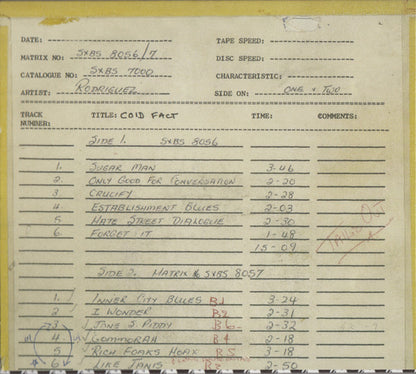 DATE: TAPE SPEED:
MATRIX NO: SXBS 8056/7 DISC SPEED:
CATALOGUE NO: SXBS 7000 CHARACTERISTIC:
ARTIST: RODRIGUEZ SIDE ON: ONE + TWO
TRACK NUMBER: TITLE: COLD FACT TIME: COMMENTS:
SIDE 1. SXBS 8056
1. SUGAR MAN 3-46
2. ONLY GOOD FOR CONVERSATION 2-20
3 CRUCIFY 2-28
4 ESTABLISHMENT BLUES 2-03
5 HATE STREET DIALOGUE 2-30
6. FORGET IT 1-48
15-09
SIDE 2. MATRIX SXBS 8057
1. INNER CITY BLUES B1 3-24
2 I WONDER B2 2-31
3 JANE S. PIDDY B6 2-32
4 GOMMORAH B4 2-18
5 RICH FOAKS HOAX B5 3-18
6 LIKE JANIS B3 2-50